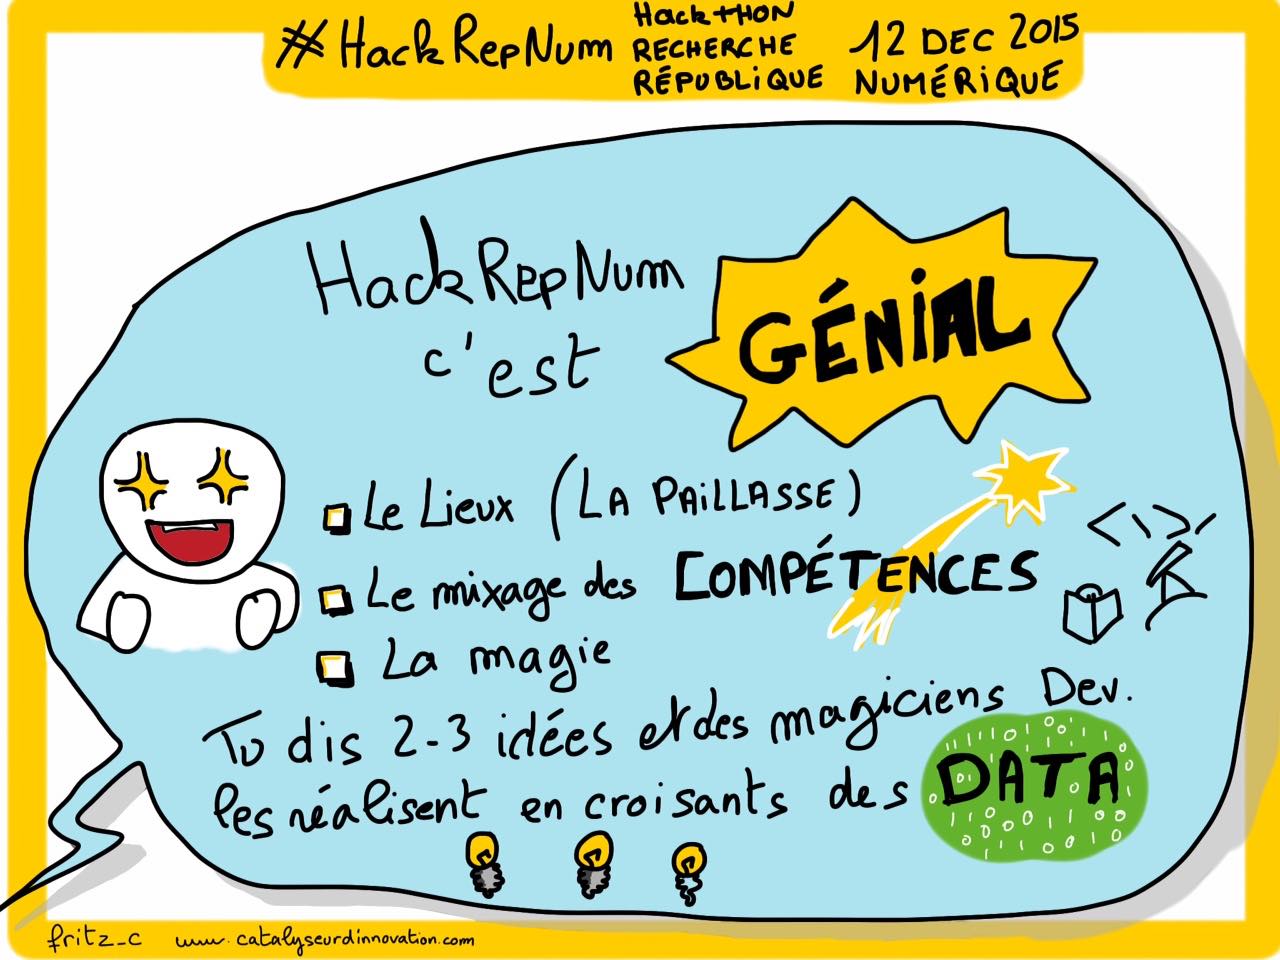 #HackRepNum
HackTHON
RECHERCHE
RÉPUBLiQUE
12 DEC 2015
NUMÉRiQUE
HackRepNum
c'est
GÉNiAL
Le Lieux (LA PAiLLASSE)
Le mixage des COMPÉTENCES
</>
La magie
Tu dis 2-3 idées et des magiciens Dev.
les réalisent en croisants des DATA
fritz_c www.catalyseurdinnovation.com